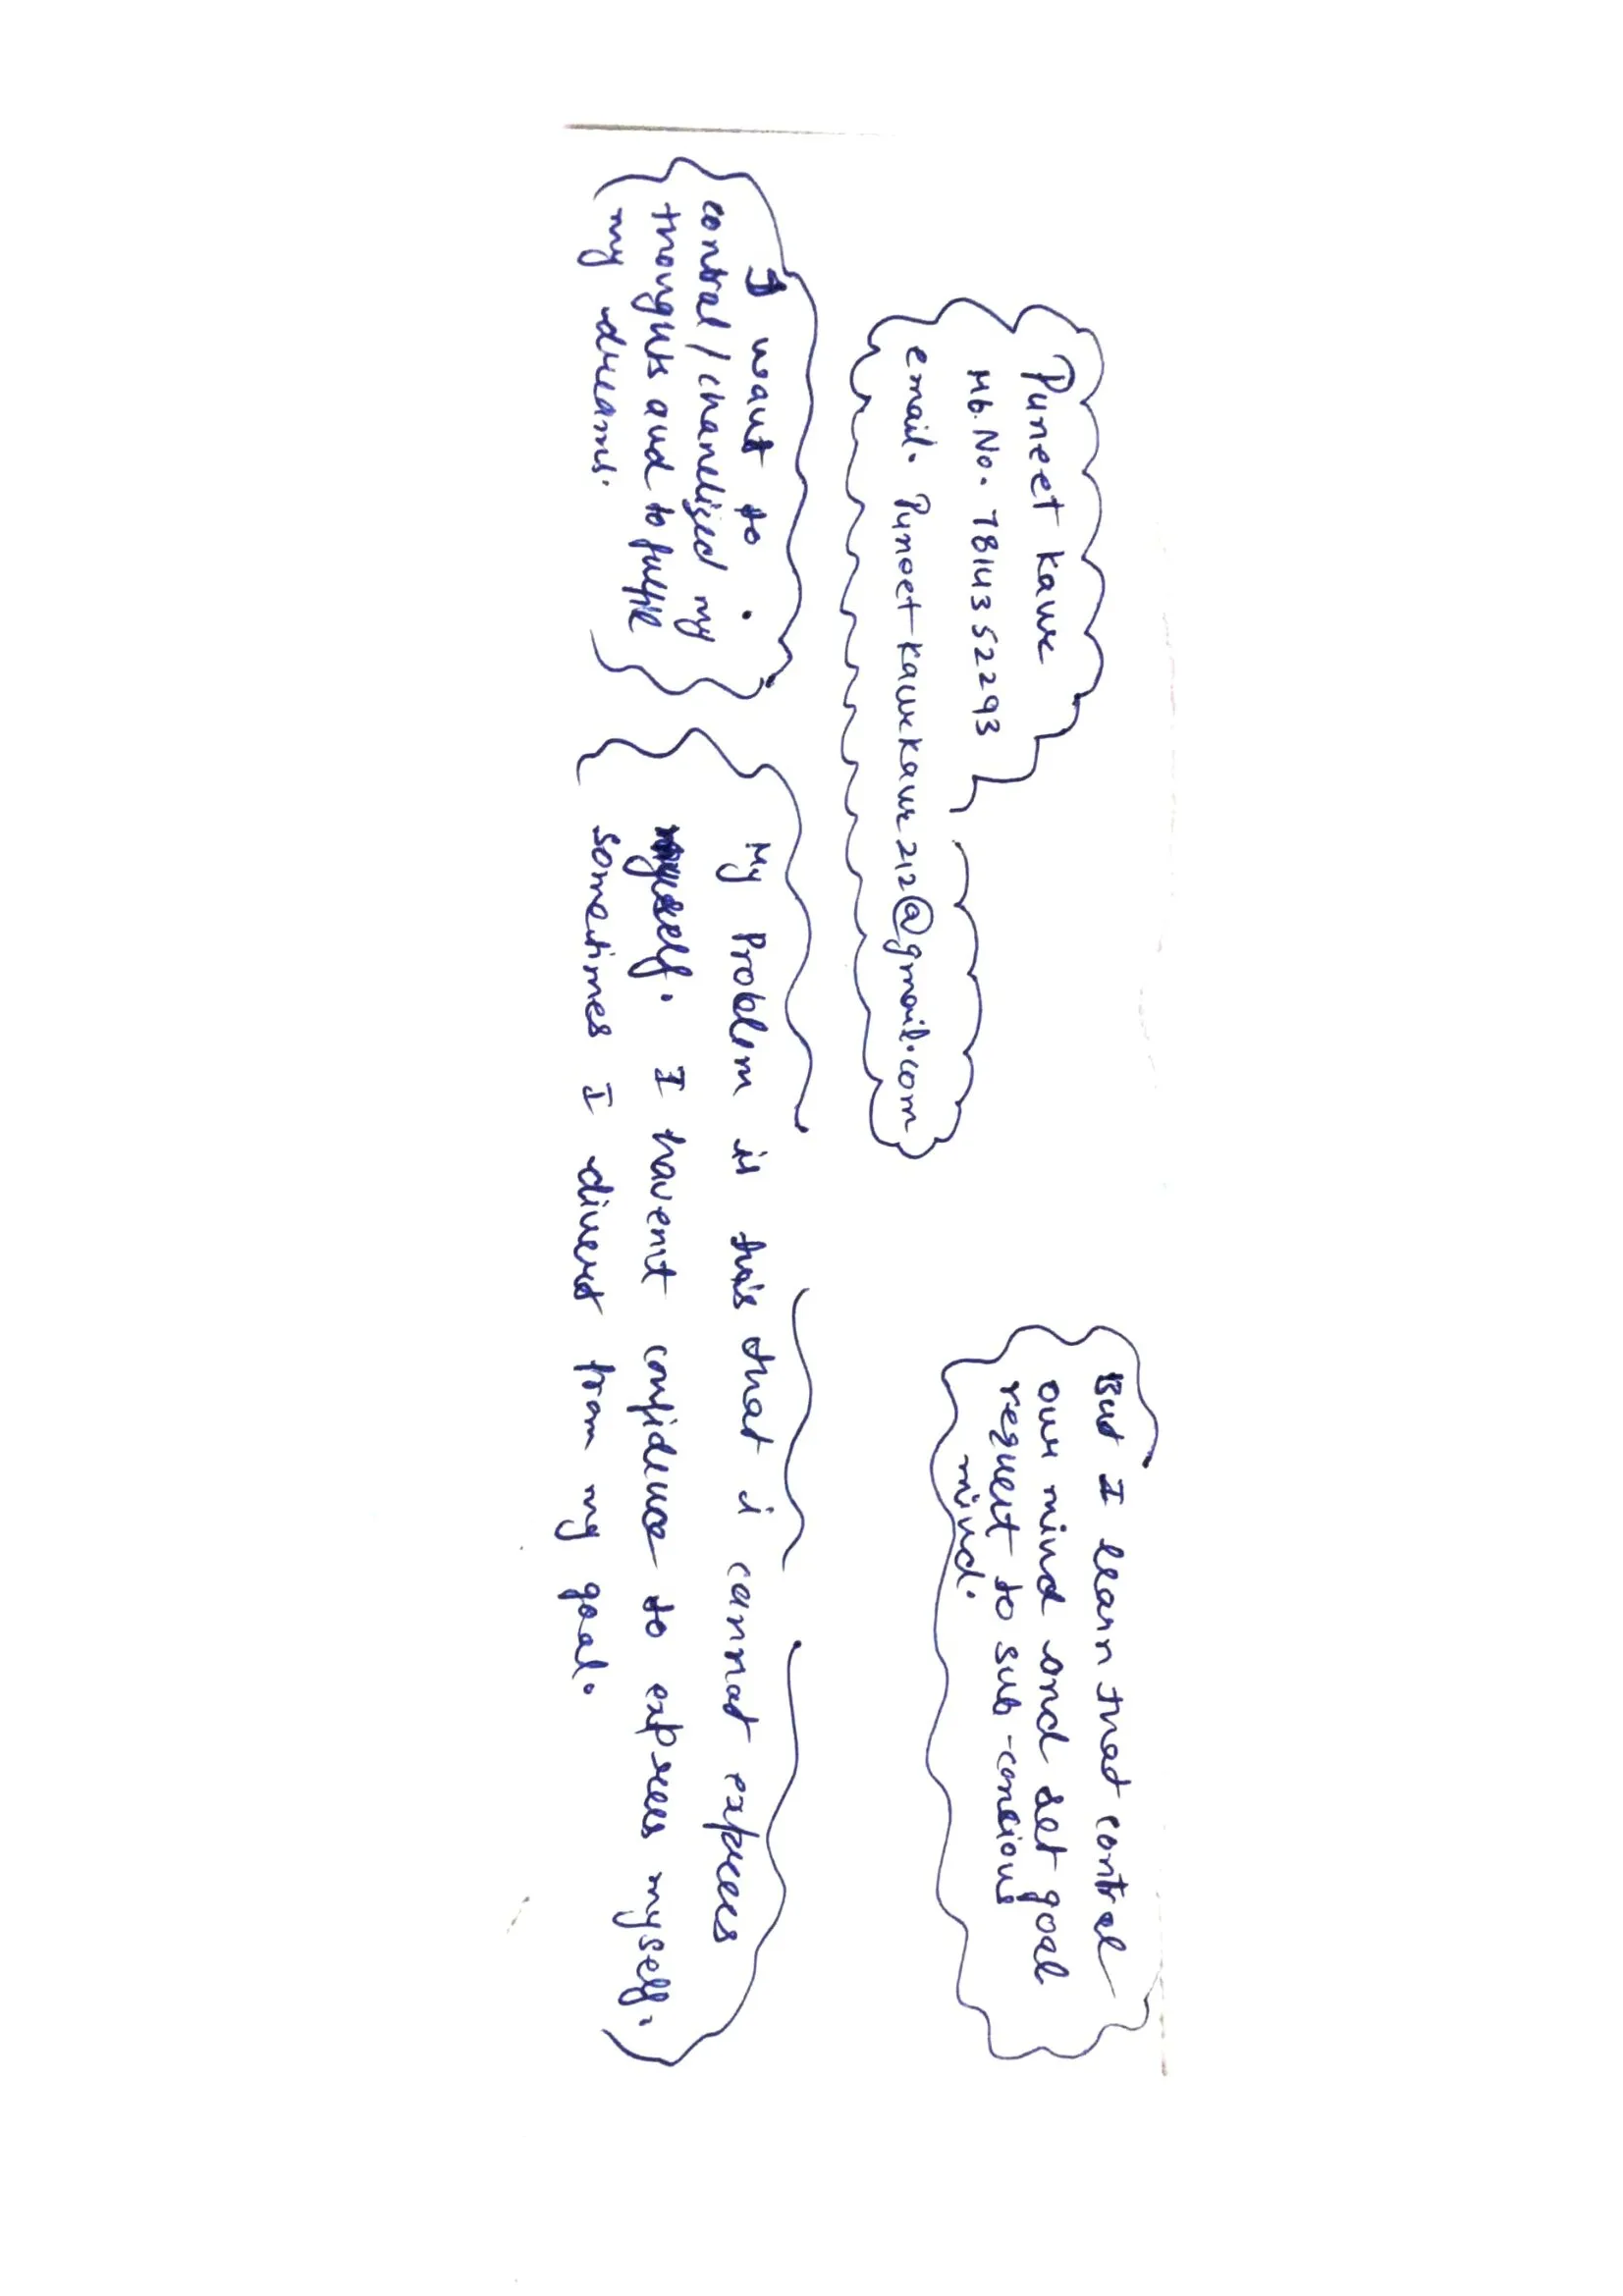 Puneet Kaur
Mb. No. 7814352293
email. Puneetkaurkaur212@gmail.com
But I learn that control
our mind and set goal
request to sub-concious
mind.
I want to
control/chanelised my
thoughts and to fulfil
my dreams.
My Problem is this that i cannot express
myself. I havent confidence to express myself.
sometimes I divert from my goal.